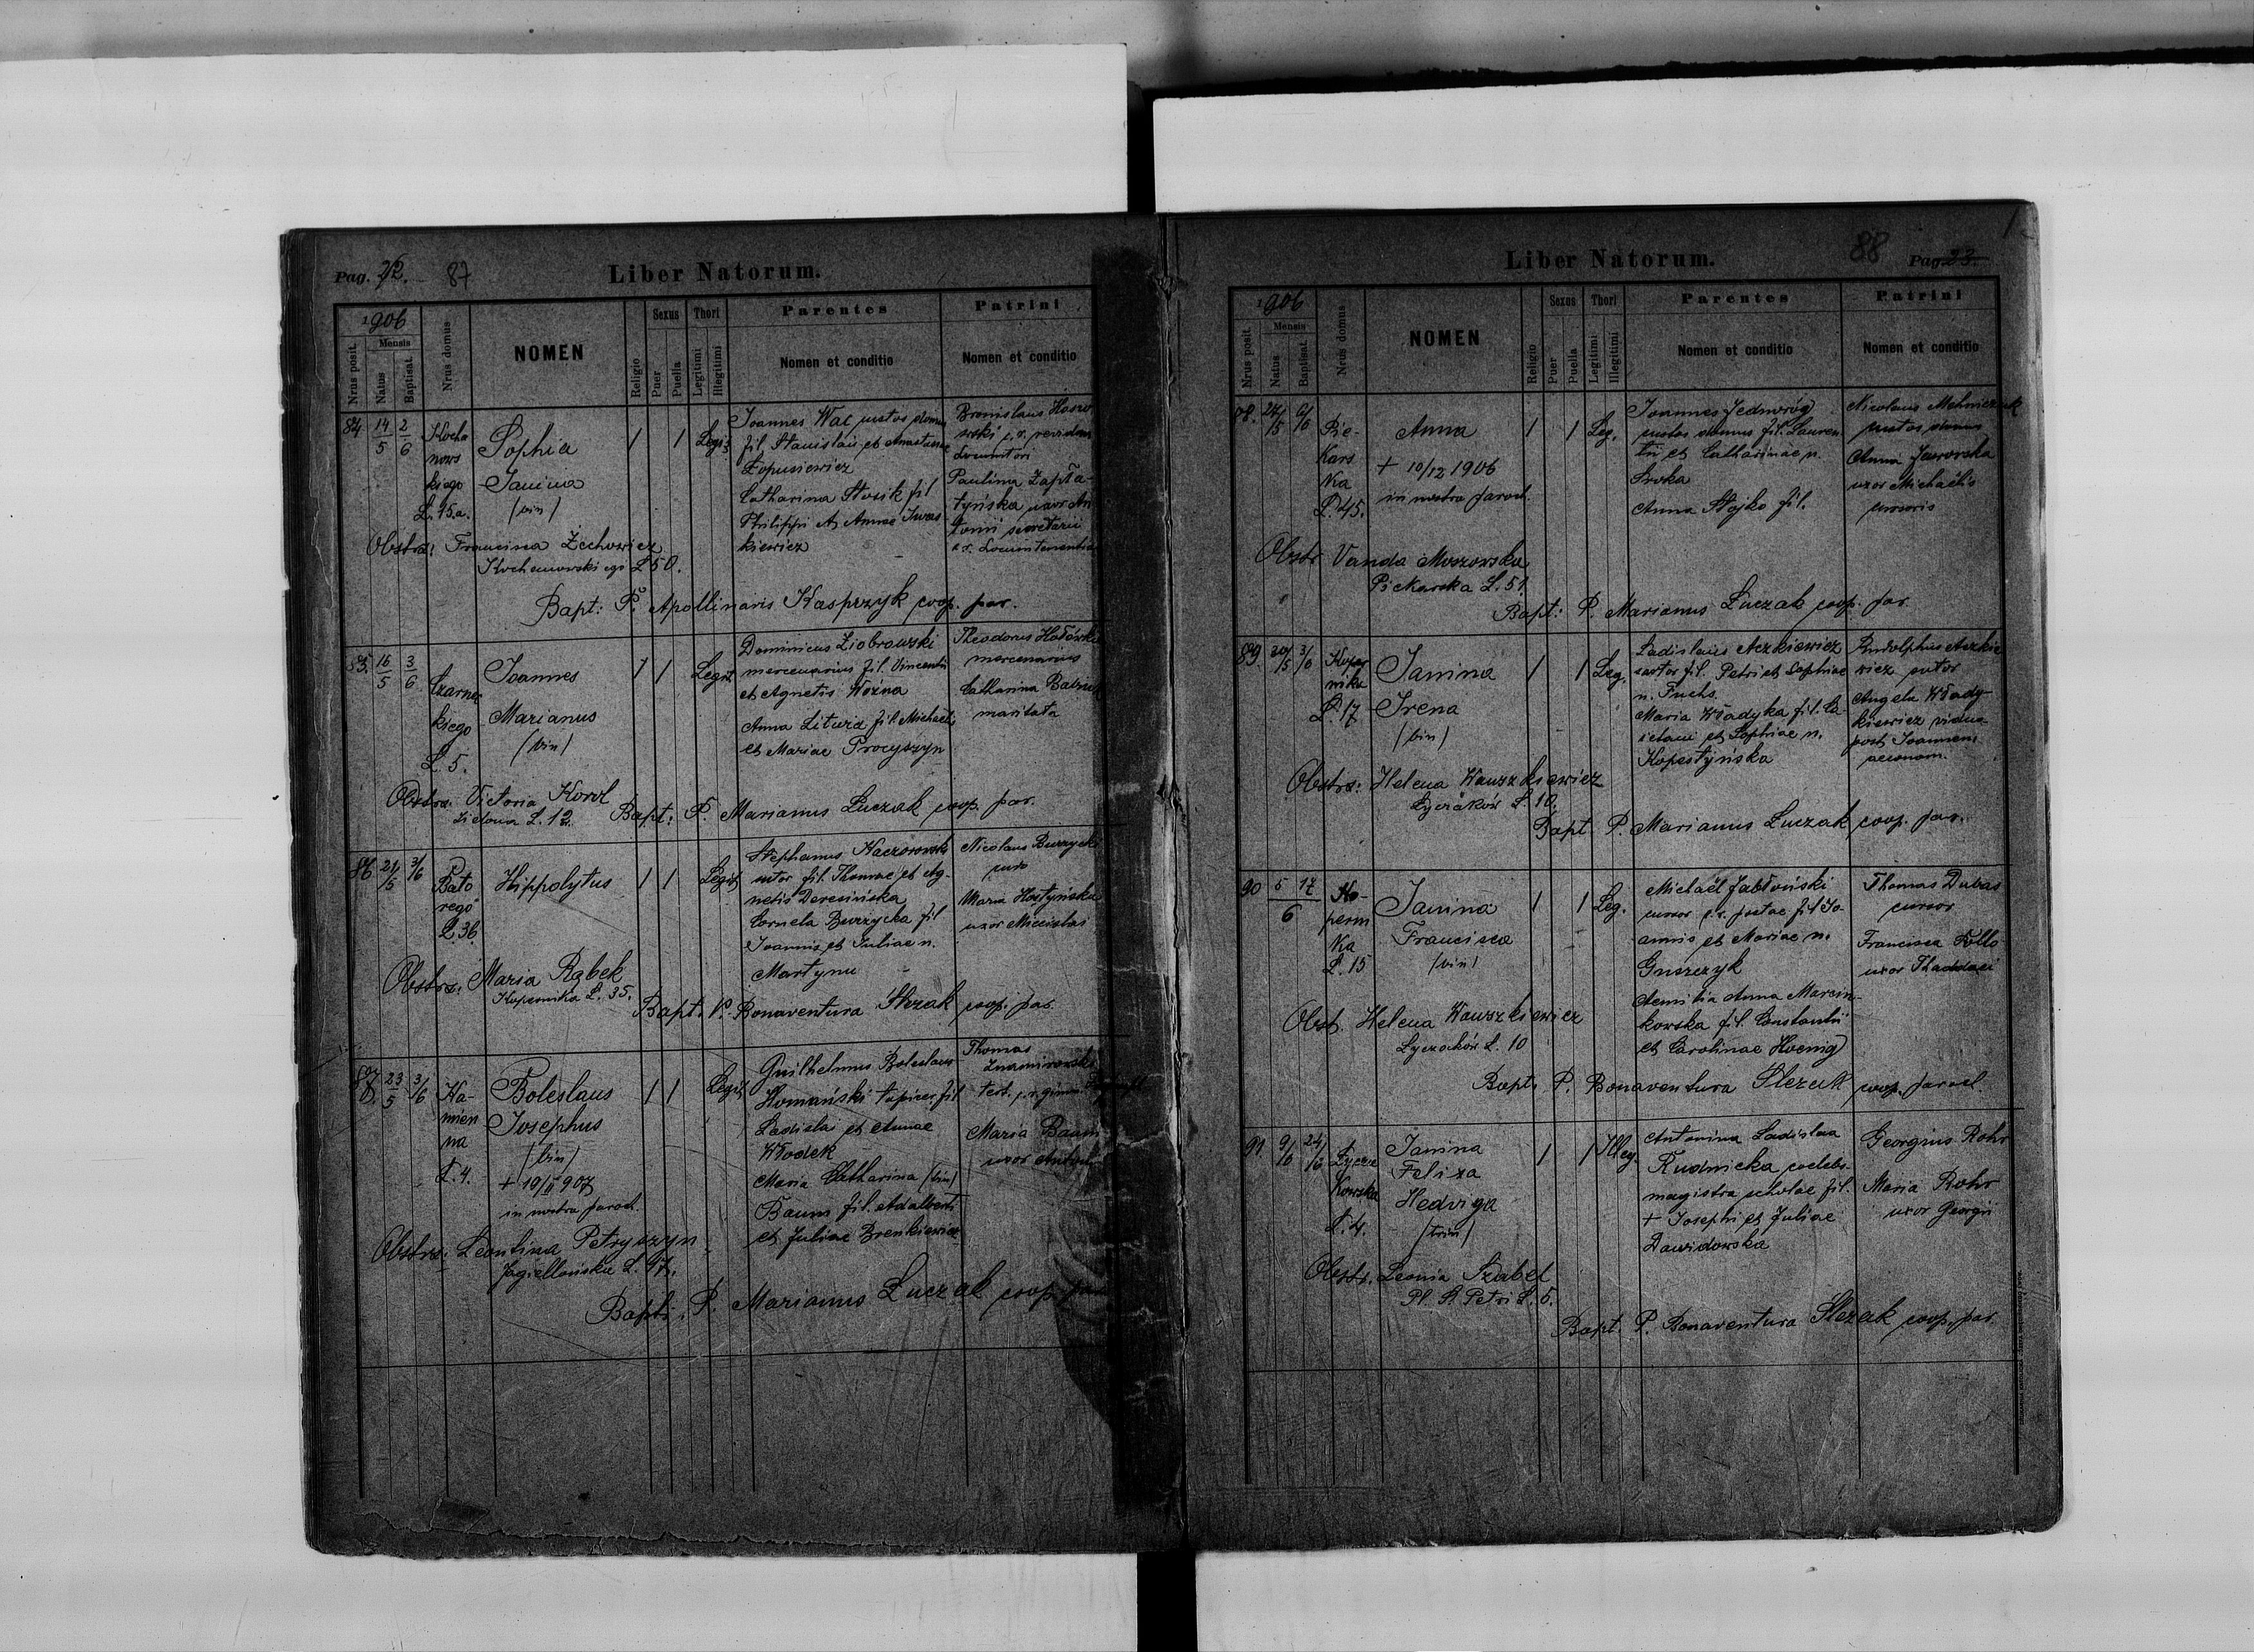 Pag. 22. 87
Liber Natorum.
1906
Nrus posit.
Mensis
Natus
Baptisat.
Nrus domus
NOMEN
Religio
Sexus
Puer
Puella
Thori
Legitimi
Illegitimi
Parentes
Nomen et conditio
Patrini
Nomen et conditio
84 14/5 2/6
Kocha
nows
kiego
L. 15.a.
Sophia
Janina
(bin)
1 1 Legit
Joannes Wac custos domus
fil. Stanislai et Anastasiae
Łopusiewicz
Catharina Stosik fil
Philippi et Annae Iwas
kiewicz
Bronislaus
c. r. revidens
Paulina Zapła-
tyńska uxor An
tonii secretarii
c. r. Locumtenentiae
Obstr: Francisca Żechowicz
Kochanowskiego L 50.
Bapt: P. Apollinaris Kasprzyk coop. par.
85. 16/5 3/6
Czarnec
kiego
L. 5.
Joannes
Marianus
(bin)
1 1 Legit
Dominicus Ziobrowski
mercenarius fil. Vincentii
et Agnetis Woźna
Anna Litura fil. Michaeli
et Mariae Procyszyn
Theodorus Hołówka
mercenarius
Catharina
maritata
Obstr: Victoria Korol
Zielona L. 12.
Bapt: P. Marianus Luczak coop. par.
86 21/5 3/6
Bato
rego
L. 36.
Hippolytus
1 1 Legit
Stephanus Kaczorowski
sutor fil. Thomae et Ag-
netis Deresińska
Cornela Burzycka fil
Joannis et Juliae n.
Martyniu
Nicolaus Burzycki
Maria Hostyńska
uxor Miecislai
Obstr: Maria Rąbek
Kopernika L. 35.
Bapt. P. Bonaventura Slezak coop. par.
87. 23/5 3/6
Ka-
mien
na
L. 4.
Boleslaus
Josephus
(bin)
+ 10/II 907
in nostra paroch.
1 1 Legit
Guilhelmus Boleslaus
Homański tapicer fil
Ladislai et Annae
Włodek
Maria Catharina (bin)
Baum fil. Adalberti
et Juliae Brenkiewicz
Thomas
Znamirowski
Maria Baum
uxor Antonii
Obstr: Leontina Petryszyn
Jagiellońska L. 97.
Bapt: P. Marianus Luczak coop. par
Liber Natorum.
88 Pag. 23.
1906
Nrus posit.
Mensis
Natus
Baptisat.
Nrus domus
NOMEN
Religio
Sexus
Puer
Puella
Thori
Legitimi
Illegitimi
Parentes
Nomen et conditio
Patrini
Nomen et conditio
88. 27/5 6/6
Pie-
kars
ka
L. 45.
Anna
+ 10/12 1906
in nostra paroch.
1 1 Leg.
Joannes Jednoróg
custos domus fil. Lauren
tii et Catharinae n.
Sroka
Anna Stojko fil.
Nicolaus
custos domus
Anna Jaworska
uxor Michaëlis
cursoris
Obstr Vanda Moszowska
Piekarska L. 51.
Bapt: P. Marianus Luczak coop. par.
89. 20/5 3/6
Koper
nika
L. 17
Janina
Irena
(bin)
1 1 Leg.
Ladislaus Aczkiewicz
sartor fil. Petri et Sophiae
n. Fuchs.
Maria Władyka fil. Ca-
ietani et Sophiae n.
Kopestyńska
Rudolphus Aczkie
wicz sutor
Angela Włady-
kiewicz vidua
post Joannem
oeconom.
Obstr: Helena Wauszkiewicz
Łyczaków L. 10.
Bapt P. Marianus Luczak coop. par.
90 5 17/6
Ko-
perni
ka
L. 15
Janina
Francisca
(bin)
1 1 Leg.
Michaël Jabłoński
cursor c.r. postae fil Jo-
annis et Mariae n.
Guszczyk
Aemilia Anna Marcin-
kowska fil. Constantii
et Carolinae Hoenig
Thomas Dubas
cursor
Francisca
uxor Thaddaei
Obst. Helena Wauszkiewicz
Łyczaków L. 10
Bapt. P. Bonaventura Slezak coop. paroch.
91. 9/6 24/6
Łycza
kowska
L. 4.
Janina
Feliza
Hedviga
(trin)
1 1 Illeg.
Antonina Ladislaa
Rudnicka coelebs-
magistra scholae fil.
+ Josephi et Juliae
Dawidowska
Georgius Rohr
Maria Rohr
uxor Georgii
Obstr. Leonia Szabel
Pl. S. Petri L. 5.
Bapt. P. Bonaventura Slezak coop. par.